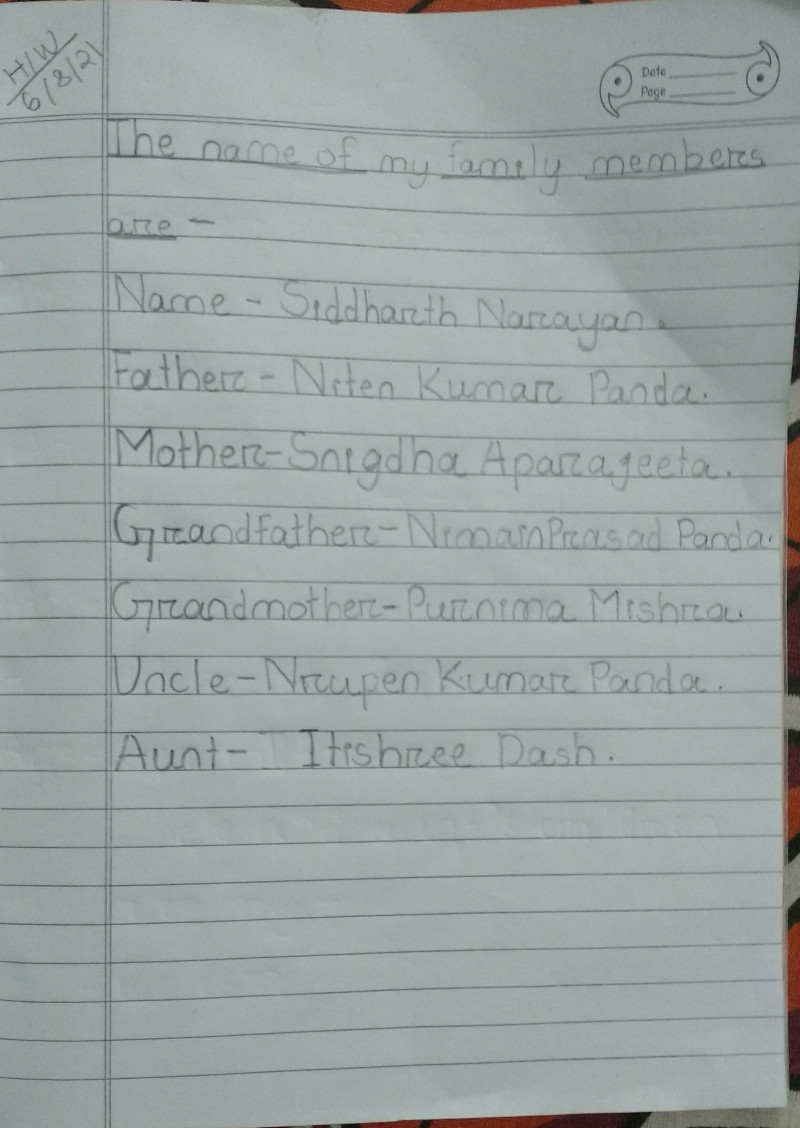 H/W
6/8/21
Date
Page
The name of my family members
are -
Name - Siddharth Narayan.
Father - Niten Kumar Panda.
Mother - Snigdha Aparajeeta.
Grandfather - NimainPrasad Panda.
Grandmother - Purnima Mishra.
Uncle - Nrupen Kumar Panda.
Aunt - Itishree Dash.